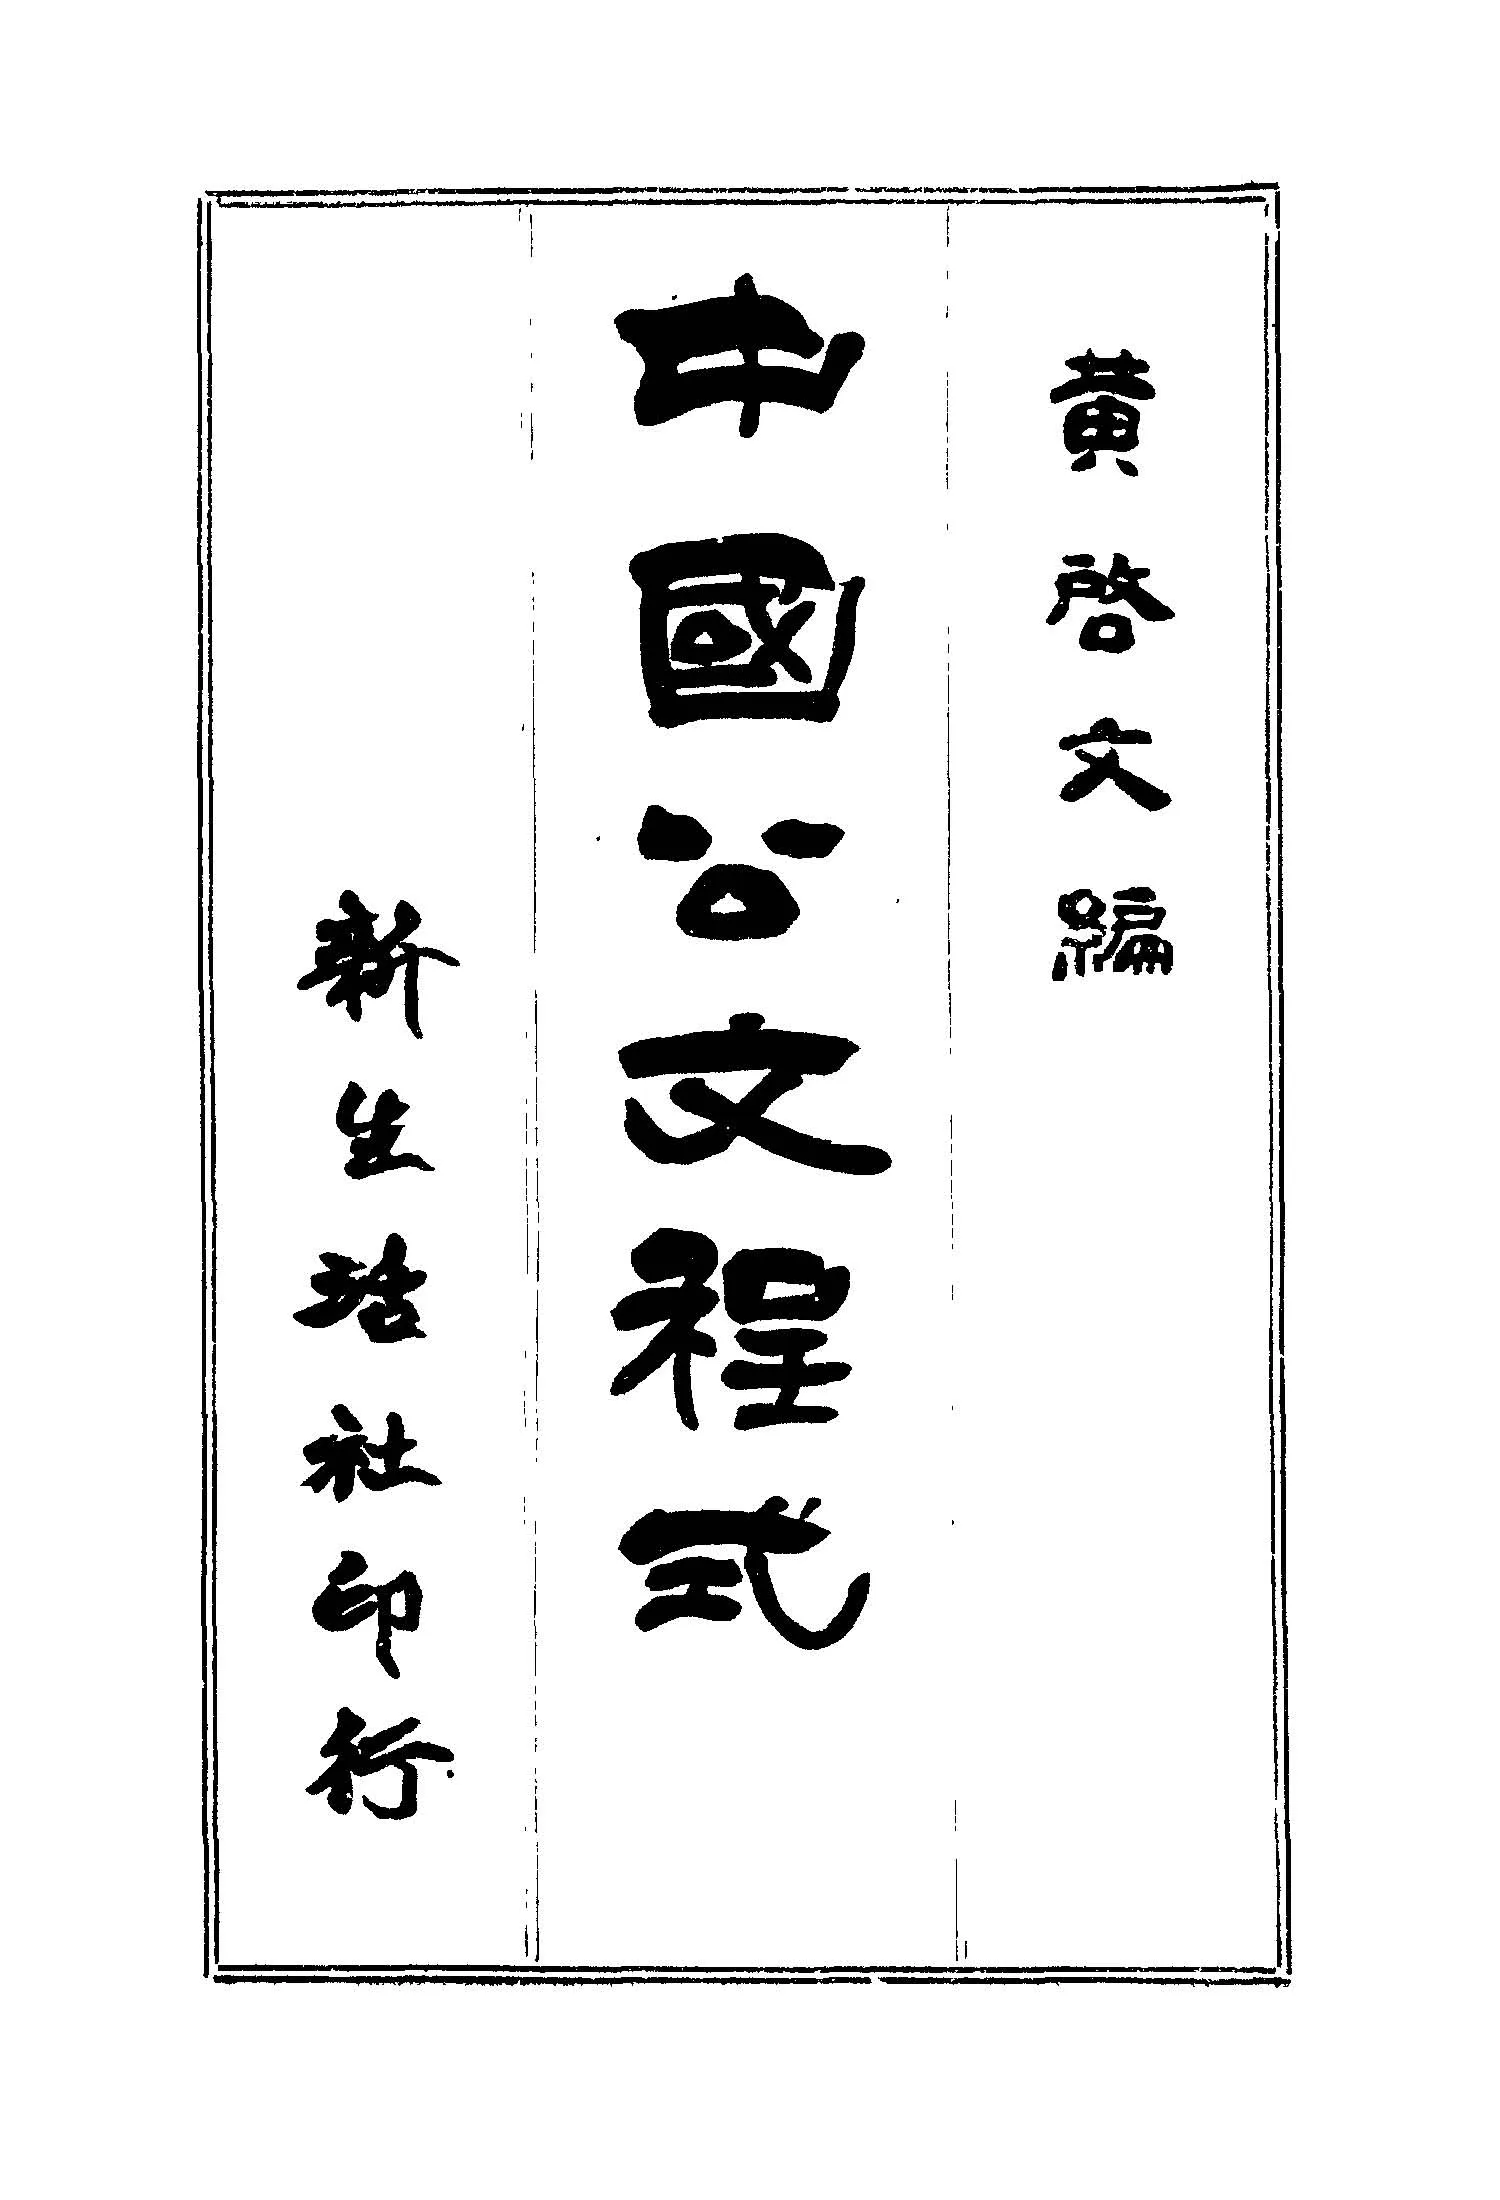 黃啓文編
中國公文程式
新生活社印行